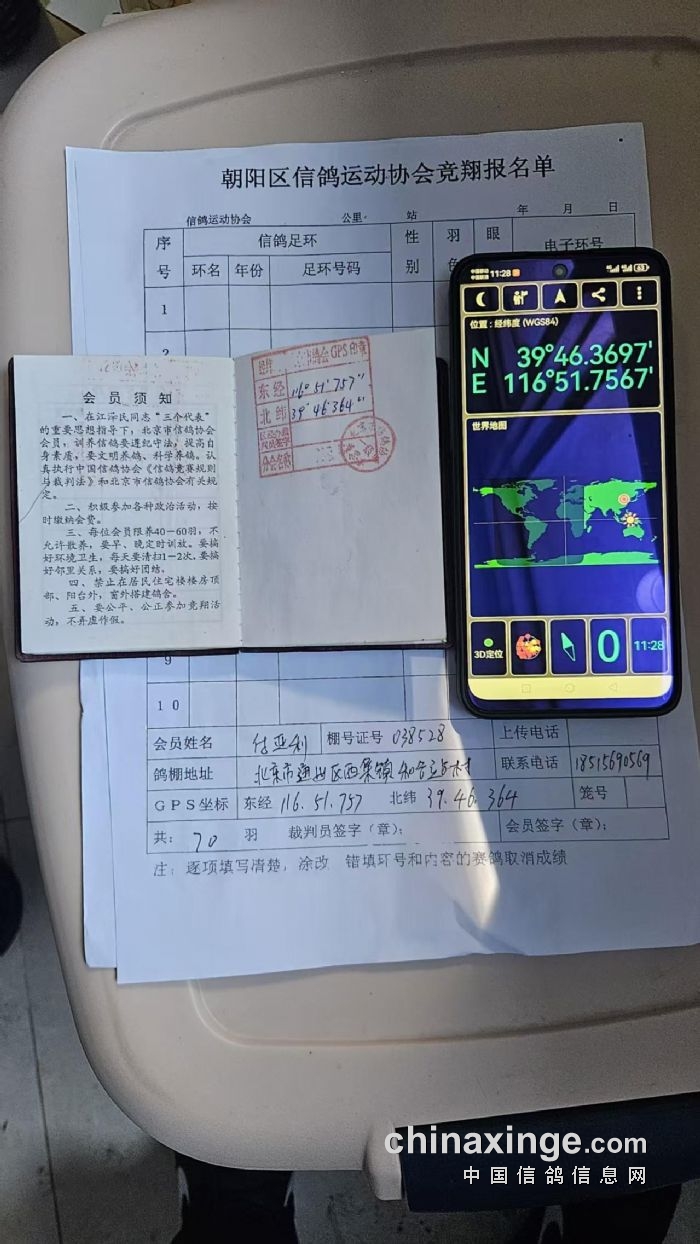 朝阳区信鸽运动协会竞翔报名单
信鸽运动协会 公里 站 年 月 日
序号 信鸽足环 性别 羽色 眼 电子环号
环名 年份 足环号码
1
2
9
10
会员姓名 棚号证号 038528 上传电话
鸽棚地址 北京市通州区西集镇 联系电话 18515690569
GPS坐标 东经 116.51.757 北纬 39.46.364 笼号
共: 70 羽 裁判员签字(章): 会员签字(章):
注: 逐项填写清楚, 涂改 错填环号和内容的赛鸽取消成绩
会员须知
一、在江泽民同志“三个代表”
的重要思想指导下, 北京市信鸽协会
会员, 训养信鸽要遵纪守法, 提高自
身素质, 要文明养鸽、科学养鸽。认
真执行中国信鸽协会《信鸽竞赛规则
与裁判法》和北京市信鸽协会有关规
定。
二、积极参加各种政治活动, 按
时缴纳会费。
三、每位会员限养40—60羽, 不
允许散养, 要早、晚定时训放。要搞
好环境卫生, 每天要清扫1—2次, 要搞
好邻里关系, 要搞好团结。
四、禁止在居民住宅楼楼房顶
部、阳台外, 窗外搭建鸽舍。
五、要公平、公正参加竞翔活
动, 不弄虚作假。
鸽会GPS印章
东经 116°51'757"
北纬 39°46'364"
分会名称
中国移动
中国联通 11:28 63
位置: 经纬度 (WGS84)
N 39°46.3697'
E 116°51.7567'
世界地图
3D定位 0 11:28
chinaxinge.com
中国信鸽信息网